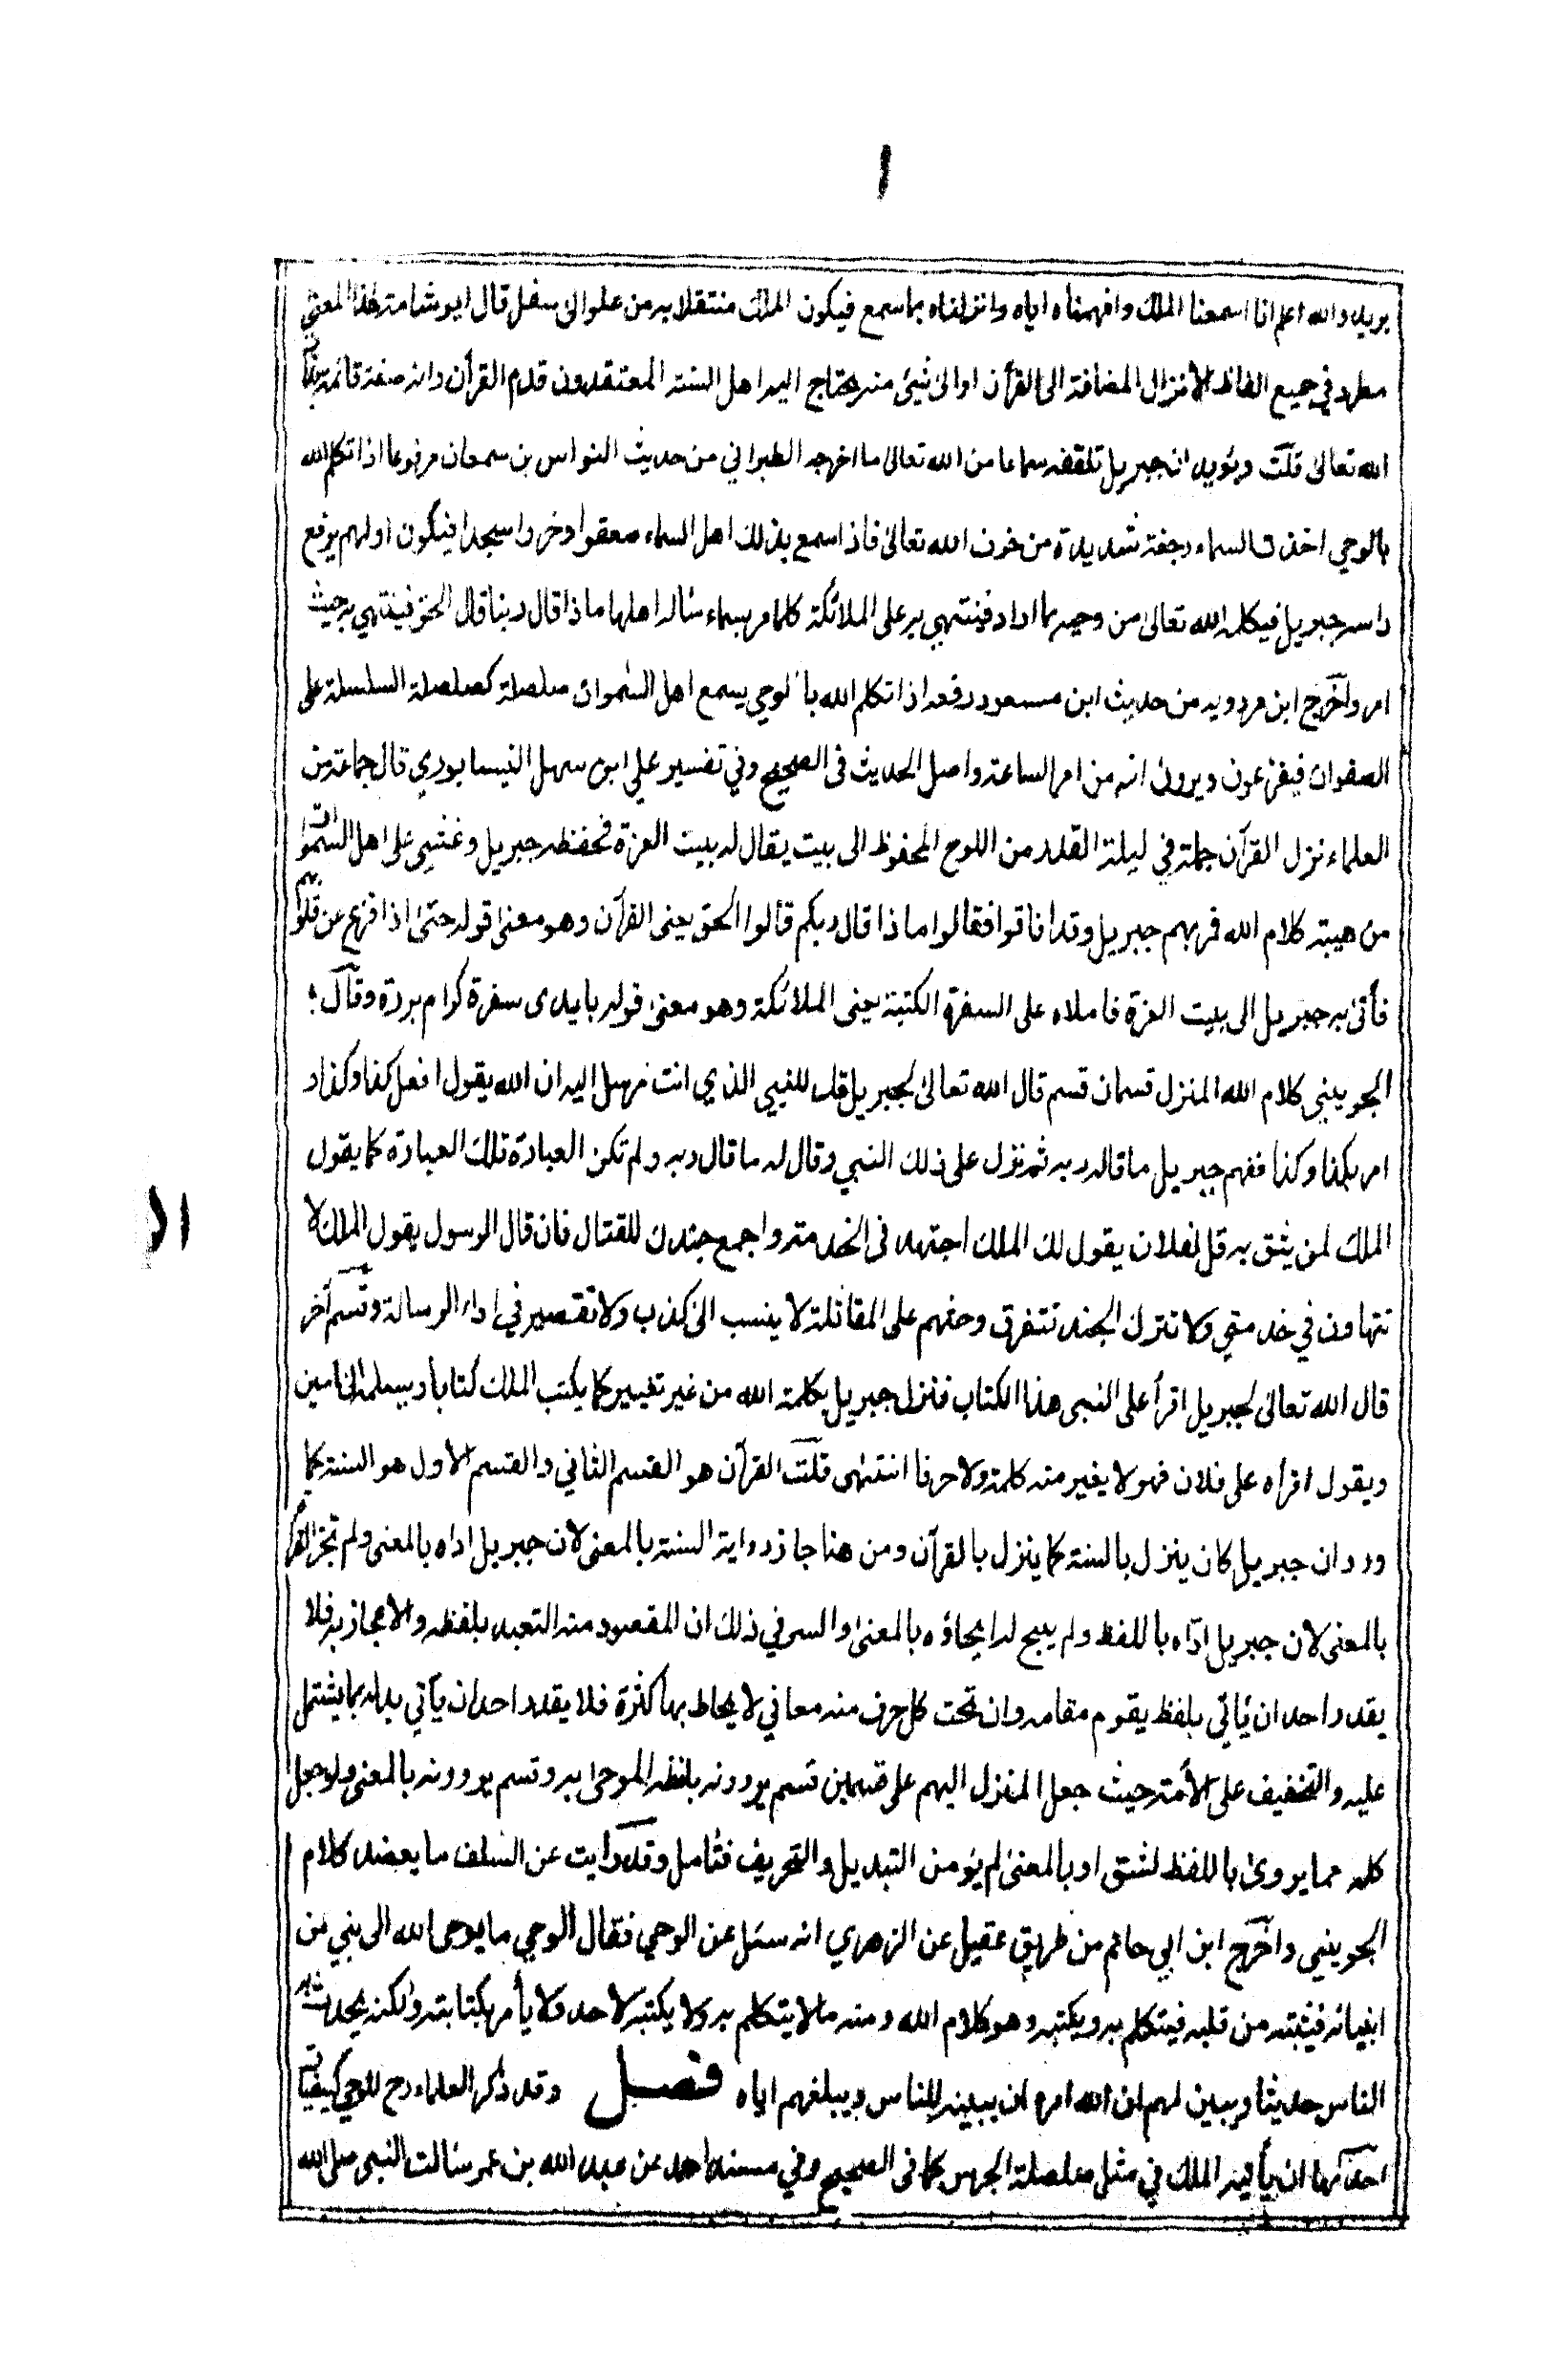 ١
يريد والله اعلم انا اسمعنا الملك وافهمناه اياه وانزلناه بما سمع فيكون الملك منتقلا به من علو الى سفل قال ابو شامة هذا المعنى
مطرد في جميع الفاظ الانزال المضافة الى القرآن او الى شيئ منه يحتاج اليه اهل السنة المعتقدون قدم القرآن وانه صفة قائمة بذات
الله تعالى قلت ويؤيد ان جبريل تلقفه سماعا من الله تعالى ما اخرجه الطبراني من حديث النواس بن سمعان مرفوعا اذا تكلم الله
بالوحي اخذت السماء رجفة شديدة من خوف الله تعالى فاذا سمع بذلك اهل السماء صعقوا وخروا سجدا فيكون اولهم يرفع
راسه جبريل فيكلمه الله تعالى من وحيه بما اراد فينتهي به على الملائكة كلما مر بسماء سئاله اهلها ماذا قال ربنا قال الحق فينتهي به حيث
امر واخرج ابن مردويه من حديث ابن مسعود رفعه اذا تكلم الله بالوحي يسمع اهل السموات صلصلة كصلصلة السلسلة على
الصفوان فيفزعون ويرون انه من امر الساعة واصل الحديث في الصحيح وفي تفسير علي ابن سهل النيسابوري قال جماعة من
العلماء نزل القرآن جملة في ليلة القدر من اللوح المحفوظ الى بيت يقال له بيت العزة فحفظه جبريل وغشي على اهل السموات
من هيبة كلام الله فمر بهم جبريل وقد افاقوا فقالوا ماذا قال ربكم قالوا الحق يعنى القرآن وهو معنى قوله حتى اذا فزع عن قلوبهم
فأتى به جبريل الى بيت العزة فاملاه على السفرة الكتبة يعنى الملائكة وهو معنى قوله بايدى سفرة كرام بررة وقال
الجويني كلام الله المنزل قسمان قسم قال الله تعالى لجبريل قل للنبي الذي انت مرسل اليه ان الله يقول افعل كذا وكذا و
امر بكذا وكذا ففهم جبريل ما قاله ربه ثم نزل على ذلك النبي وقال له ما قال ربه ولم تكن العبارة تلك العبارة كما يقول
الملك لمن يثق به قل لفلان يقول لك الملك اجتهد في الخدمة واجمع جندك للقتال فان قال الرسول يقول الملك لا
تتهاون في خدمتي ولا تترك الجند تتفرق وحثهم على المقاتلة لا ينسب الى كذب ولا تقصير في اداء الرسالة وقسم آخر
قال الله تعالى لجبريل اقرأ على النبي هذا الكتاب فنزل جبريل بكلمة الله من غير تغيير كما يكتب الملك كتابا ويسلمه الى امين
ويقول اقرأه على فلان فهو لا يغير منه كلمة ولا حرفا انتهى قلت القرآن هو القسم الثاني والقسم الاول هو السنة كما
ورد ان جبريل كان ينزل بالسنة كما ينزل بالقرآن ومن هنا جاز رواية السنة بالمعنى لان جبريل اداه بالمعنى ولم تجز القراءة
بالمعنى لان جبريل ادّاه باللفظ ولم يبح له ايحاؤه بالمعنى والسر في ذلك ان المقصود منه التعبد بلفظه والاعجاز به فلا
يقدر احد ان يأتي بلفظ يقوم مقامه وان تحت كل حرف منه معاني لا يحاط بها كثرة فلا يقدر احد ان يأتي بدله بما يشتمل
عليه والتخفيف على الأمة حيث جعل المنزل اليهم على قسمين قسم يروونه بلفظه الموحى به وقسم يروونه بالمعنى ولو جعل
كله مما يروى باللفظ لشق او بالمعنى لم يؤمن التبديل والتحريف فتأمل وقد رايت عن السلف ما يعضد كلام
الجويني واخرج ابن ابي حاتم من طريق عقيل عن الزهري انه سئل عن الوحي فقال الوحي ما يوحى الله الى نبي من
انبيائه فيثبته من قلبه فيتكلم به ويكتبه وهو كلام الله ومنه ما لا يتكلم به ولا يكتبه لاحد ولا يأمر بكتابته ولكنه يحدث به
الناس حديثا ويبين لهم ان الله امره ان يبينه للناس ويبلغهم اياه فصل وقد ذكر العلماء رح للوحي كيفيات
احدها ان يأتيه الملك في مثل صلصلة الجرس كما في الصحيح وفي مسند احمد عن عبد الله بن عمر سئالت النبي صلى الله